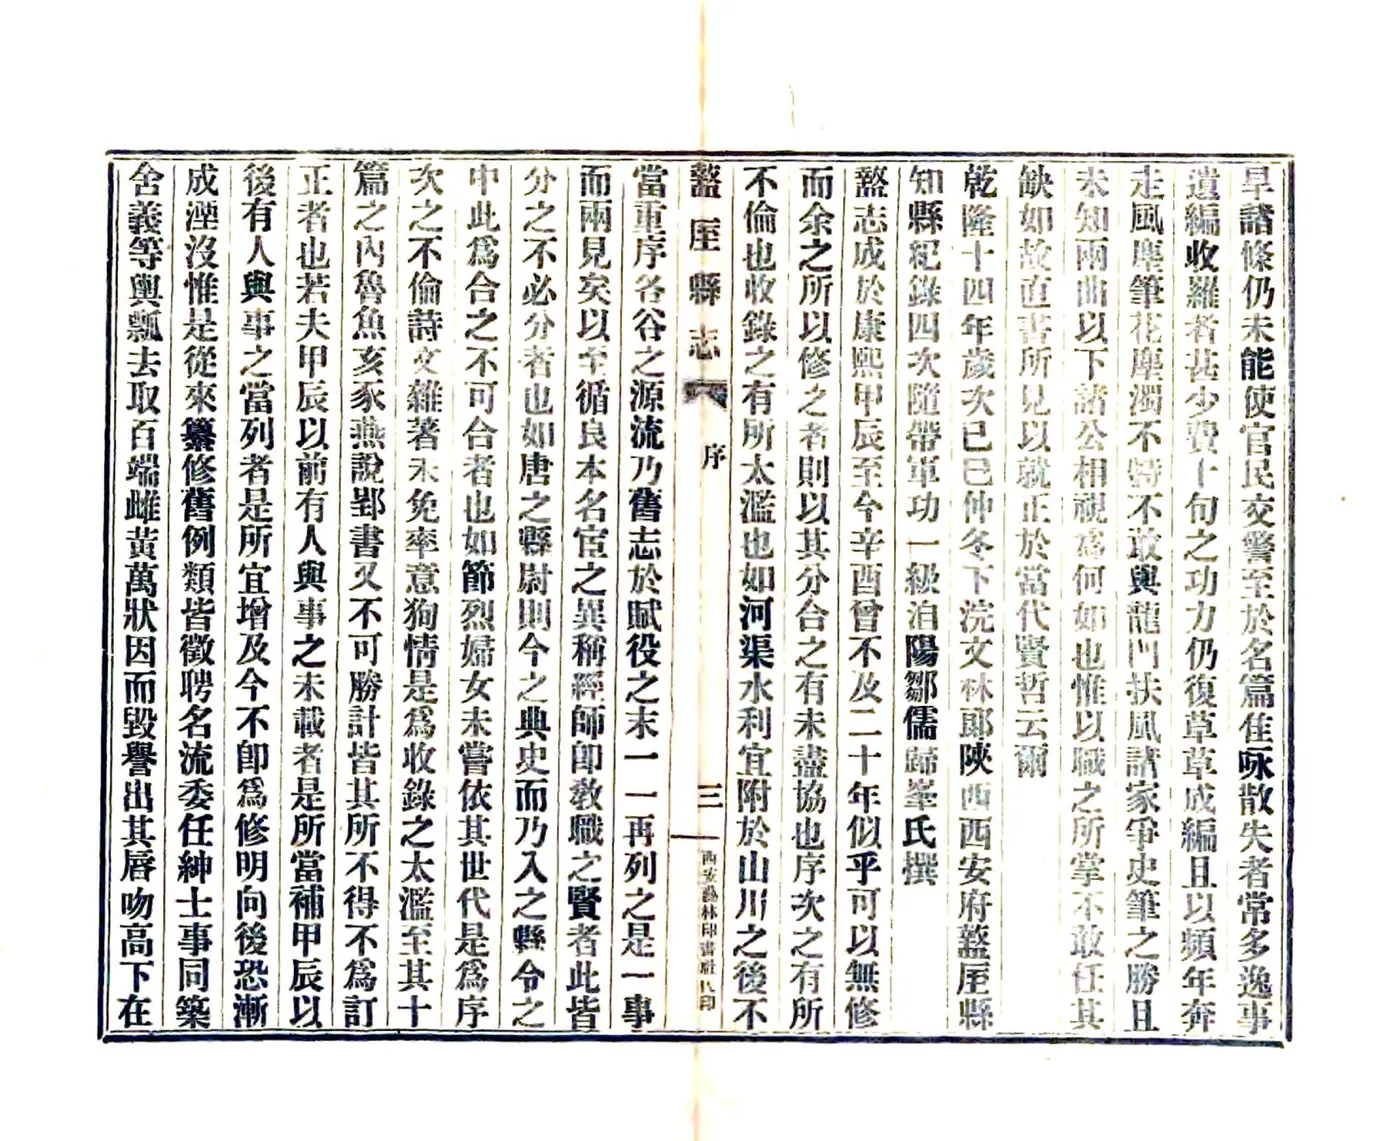 旱諸條仍未能使官民交警至於名篇佳咏散失者常多逸事
遺編收羅者甚少費十旬之功力仍復草草成編且以頻年奔
走風塵筆花塵濁不特不敢與龍門扶風諸家爭史筆之勝且
未知兩曲以下諸公相視爲何如也惟以職之所掌不敢任其
缺如故直書所見以就正於當代賢哲云爾
乾隆十四年歲次己巳仲冬下浣文林郎陝西西安府盩厔縣
知縣紀錄四次隨帶軍功一級洎陽鄒儒歸峯氏撰
盩志成於康熙甲辰至今辛酉曾不及二十年似乎可以無修
而余之所以修之者則以其分合之有未盡協也序次之有所
不倫也收錄之有所太濫也如河渠水利宜附於山川之後不
盩厔縣志
序
三
西安藝林印書社代印
當重序各谷之源流乃舊志於賦役之末一一再列之是一事
而兩見矣以至循良本名宦之異稱經師卽敎職之賢者此皆
分之不必分者也如唐之縣尉則今之典史而乃入之縣令之
中此爲合之不可合者也如節烈婦女未嘗依其世代是爲序
次之不倫詩文雜著未免率意狥情是爲收錄之太濫至其十
篇之內魯魚亥豕燕說郢書又不可勝計皆其所不得不爲訂
正者也若夫甲辰以前有人與事之未載者是所當補甲辰以
後有人與事之當列者是所宜增及今不卽爲修明向後恐漸
成湮沒惟是從來纂修舊例類皆徵聘名流委任紳士事同築
舍義等輿瓢去取百端雌黃萬狀因而毀譽出其唇吻高下在